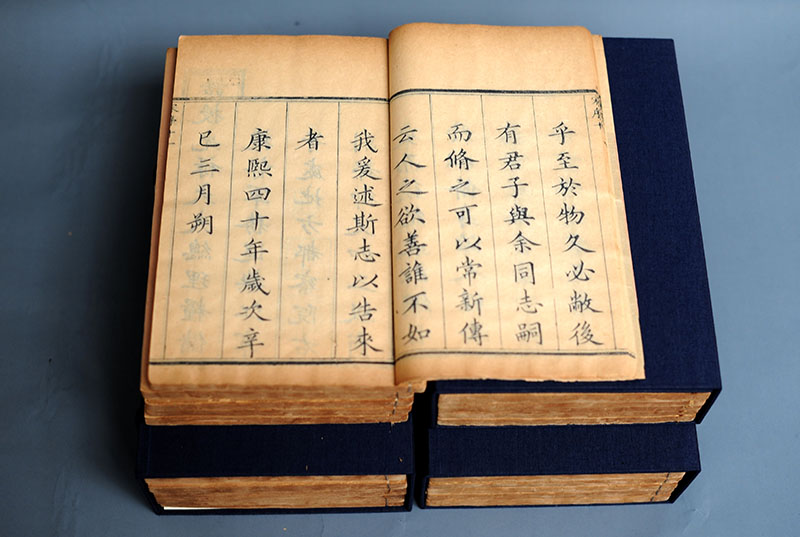 乎至於物久必敝後
有君子與余同志嗣
而脩之可以常新傳
云人之欲善誰不如
我爰述斯志以告來
者
康熙四十年歲次辛
巳三月朔